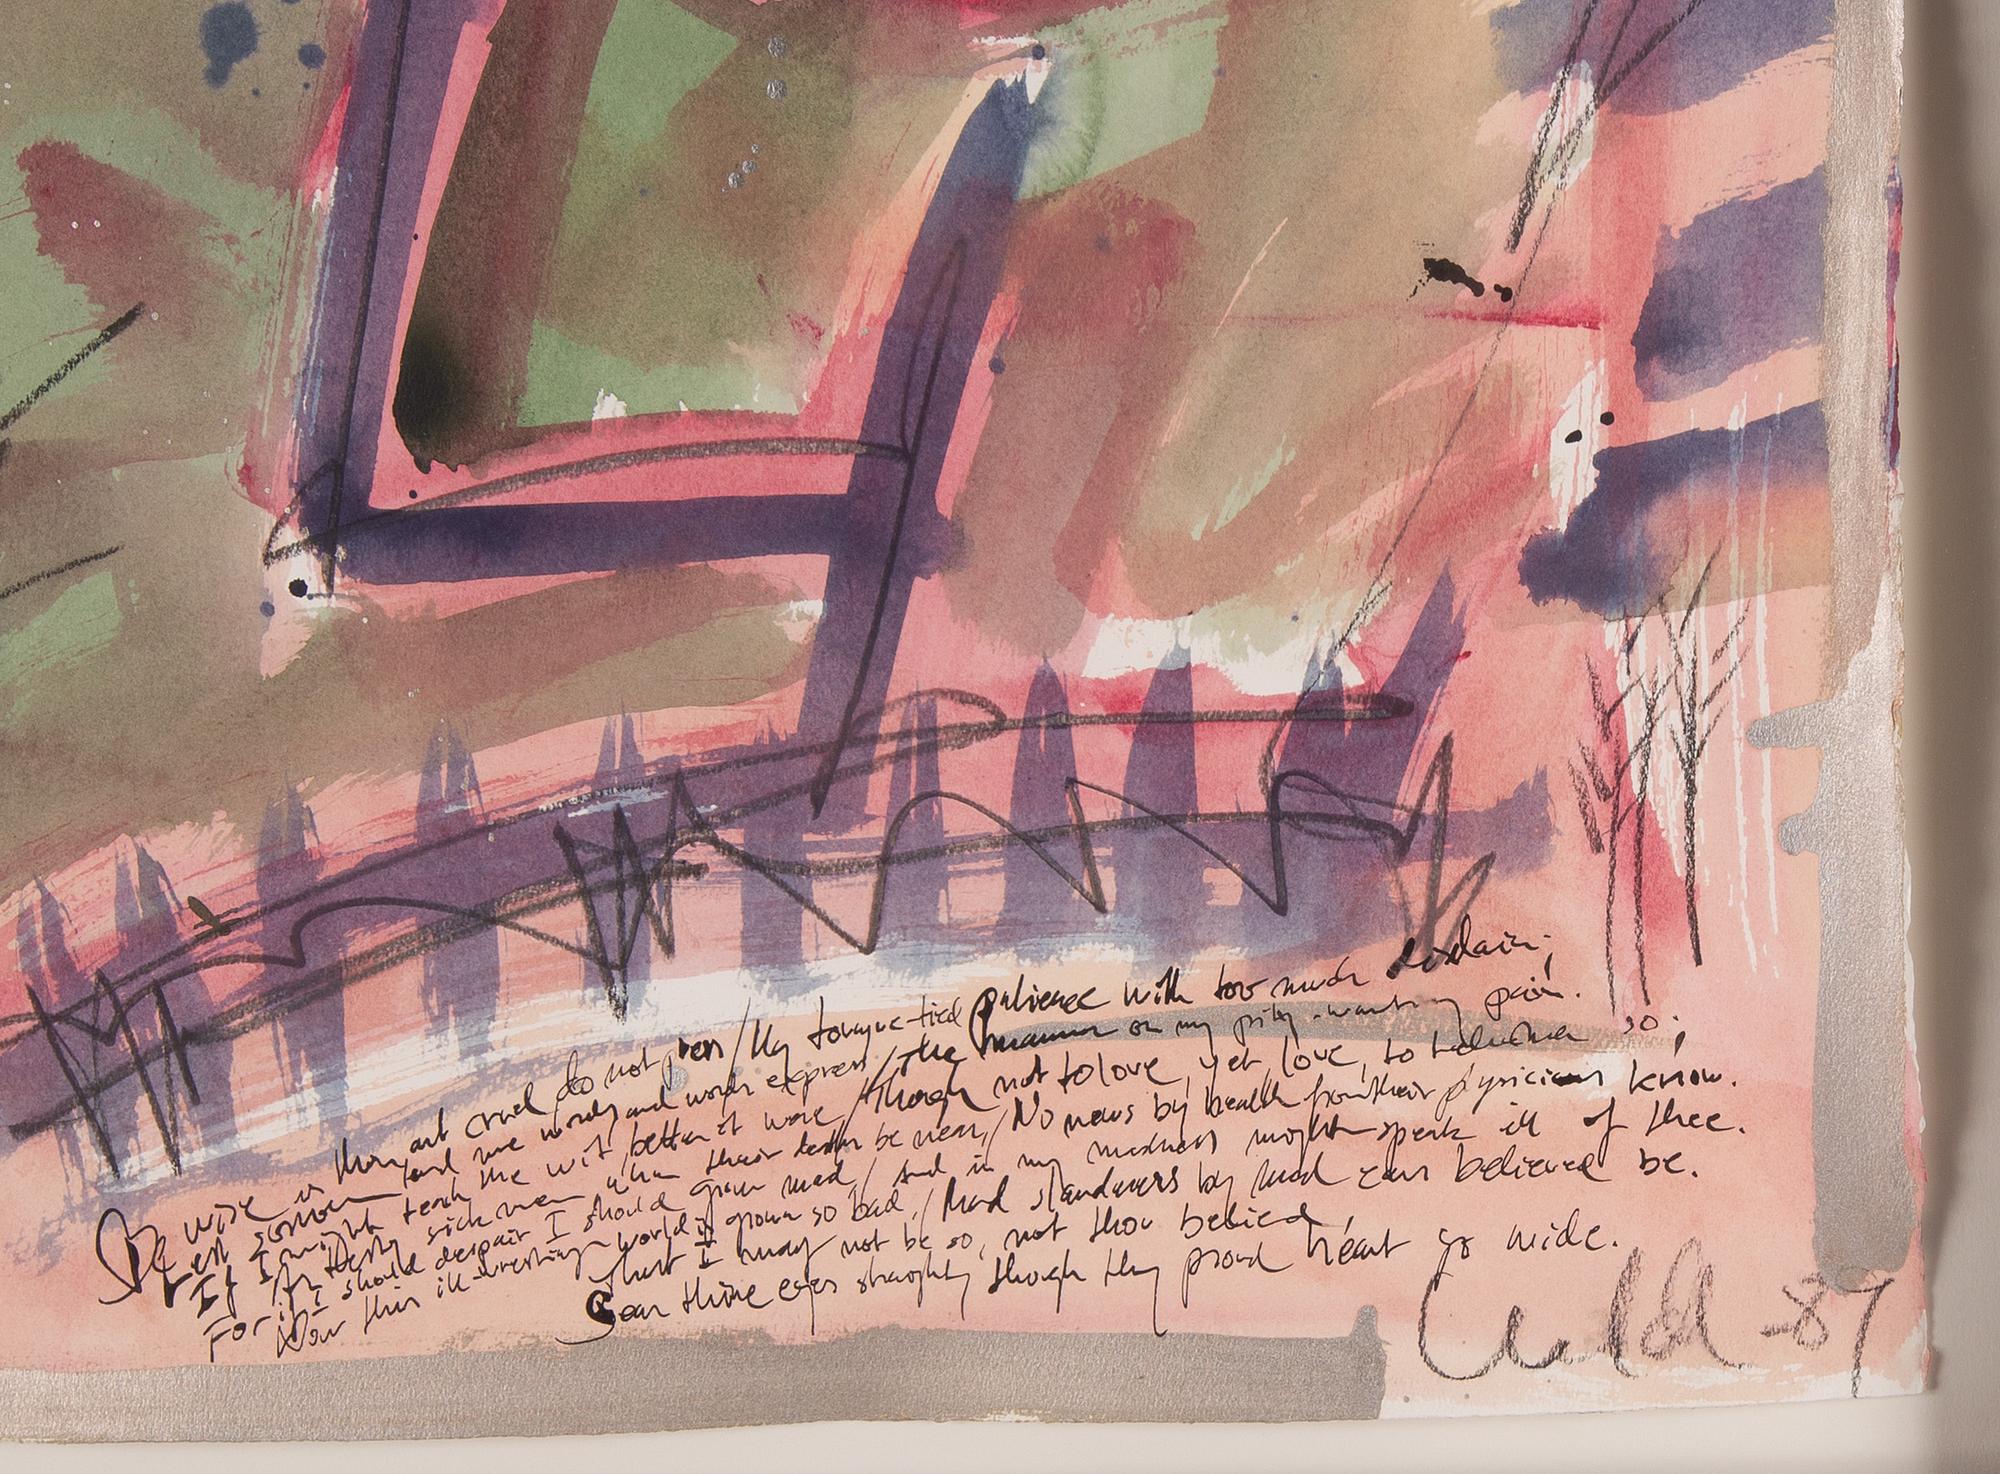 Be wise as thou art cruel do not press / My tongue-tied patience with too much disdain;
Lest sorrow lend me words and words express / The manner on my pity-want-g pain.
If I might teach thee wit, better it were / Though not to love, yet, love, to tell me so;
As testy sick men when their deaths be near, / No news by health from their physicians know.
For if I should despair I should grow mad / And in my madness might speak ill of thee.
Now this ill-wresting world is grown so bad, / Mad slanderers by mad ears believed be.
That I may not be so, not thou belied,
Bear thine eyes straight, though thy proud heart go wide.
-87